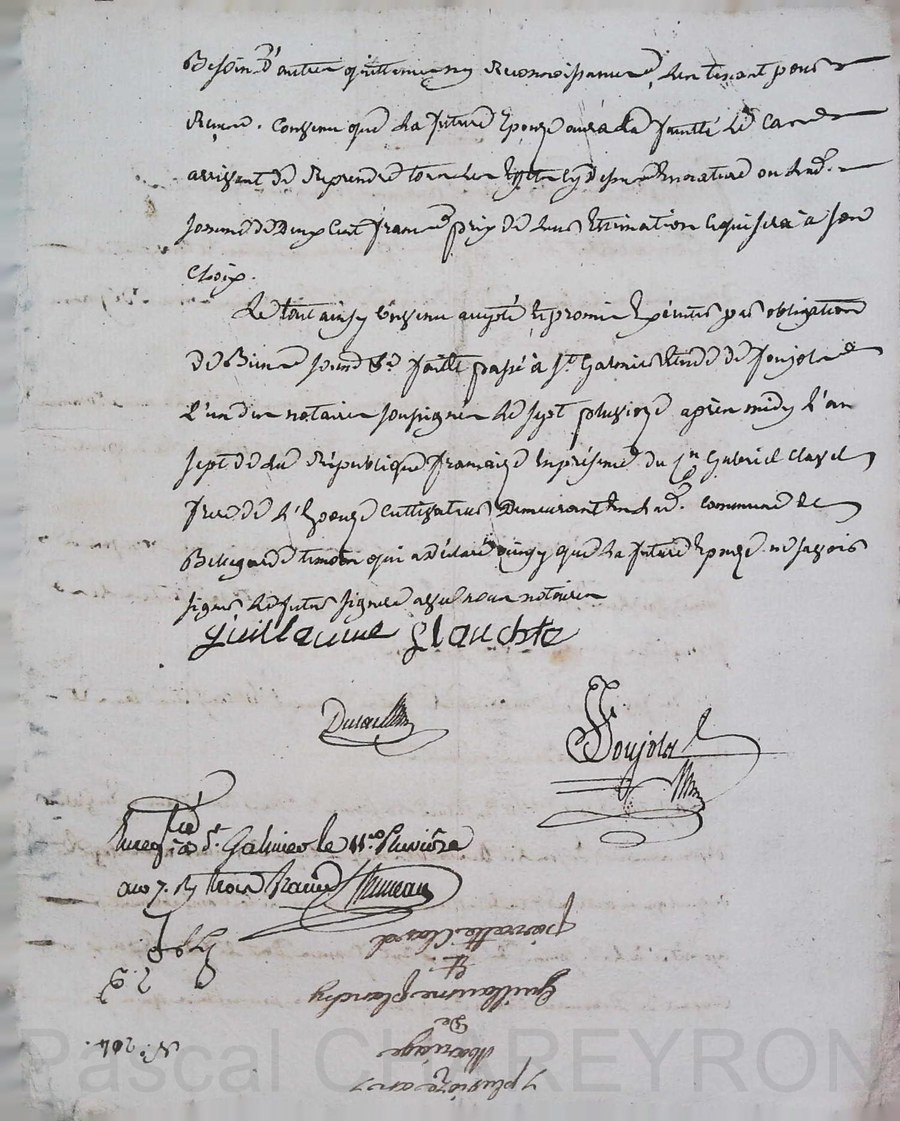 Besoin d'autre quittance ny Reconnoissance, Les tenant pour
Reçus. Convenu que La future Epouse aura La faculté Le Cas
arrivant de Reprendre tous Les Effets cy dessus En nature ou Lad.
somme de Deux Cent francs prix de Leur Estimation Ce qui sera à son
Choix.
Le tout ainsy Convenu accepté Et promis Exécuter par obligation
de Biens soumd. &a. fait Et passé à St. Galmier Etude de Foujols
L'un des notaires soussignés Le sept pluviose après midy L'an
sept de La République française En présence du Cn. Gabriel Clavel
frere de L'Epouse Cultivateur Demeurant En Lad. Commune de
Bellegarde temoin qui a déclaré ainsy que La future Epouse ne savoir
signer Le futur signera avec nous notaires
guillaume flanchte
Foujols
Enregtré à St. Galmier le 11. Pluviôse
an 7. Rç trois francs
pierrette Clavel
Et
Guillaume planchy
De
Mariage
7 pluvioze an 7
N.° 204.